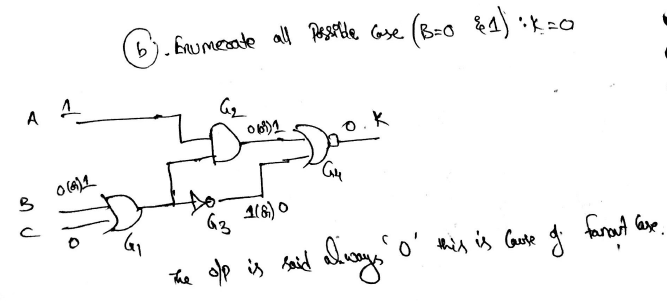 (b). Enumerate all Possible Case (B=0 &1) : K=0
A 1
G2
0(or)1
0. K
G4
B 0(or)1
C 0
G1
G3
1(or)0
The o/p is said always '0' this is cause of fanout case.